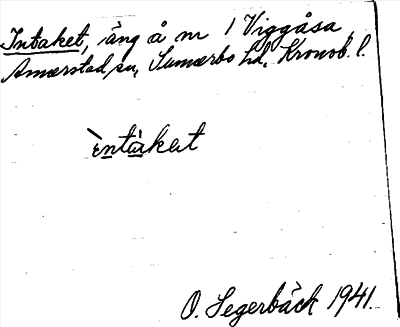 Intaket, äng å nr 1 Viggåsa,
Annerstad sn, Sunnerbo hd, Kronob. l.
èntàkat
O. Segerbäck 1941.